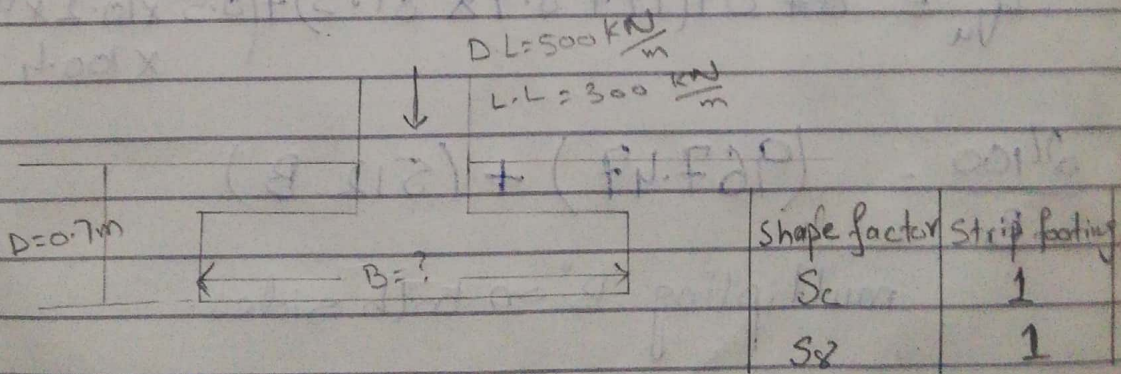 D.L=500 KN/m
L.L = 300 KN/m
D=0.7m
B=?
Shape factor Strip footing
Sc 1
Sγ 1